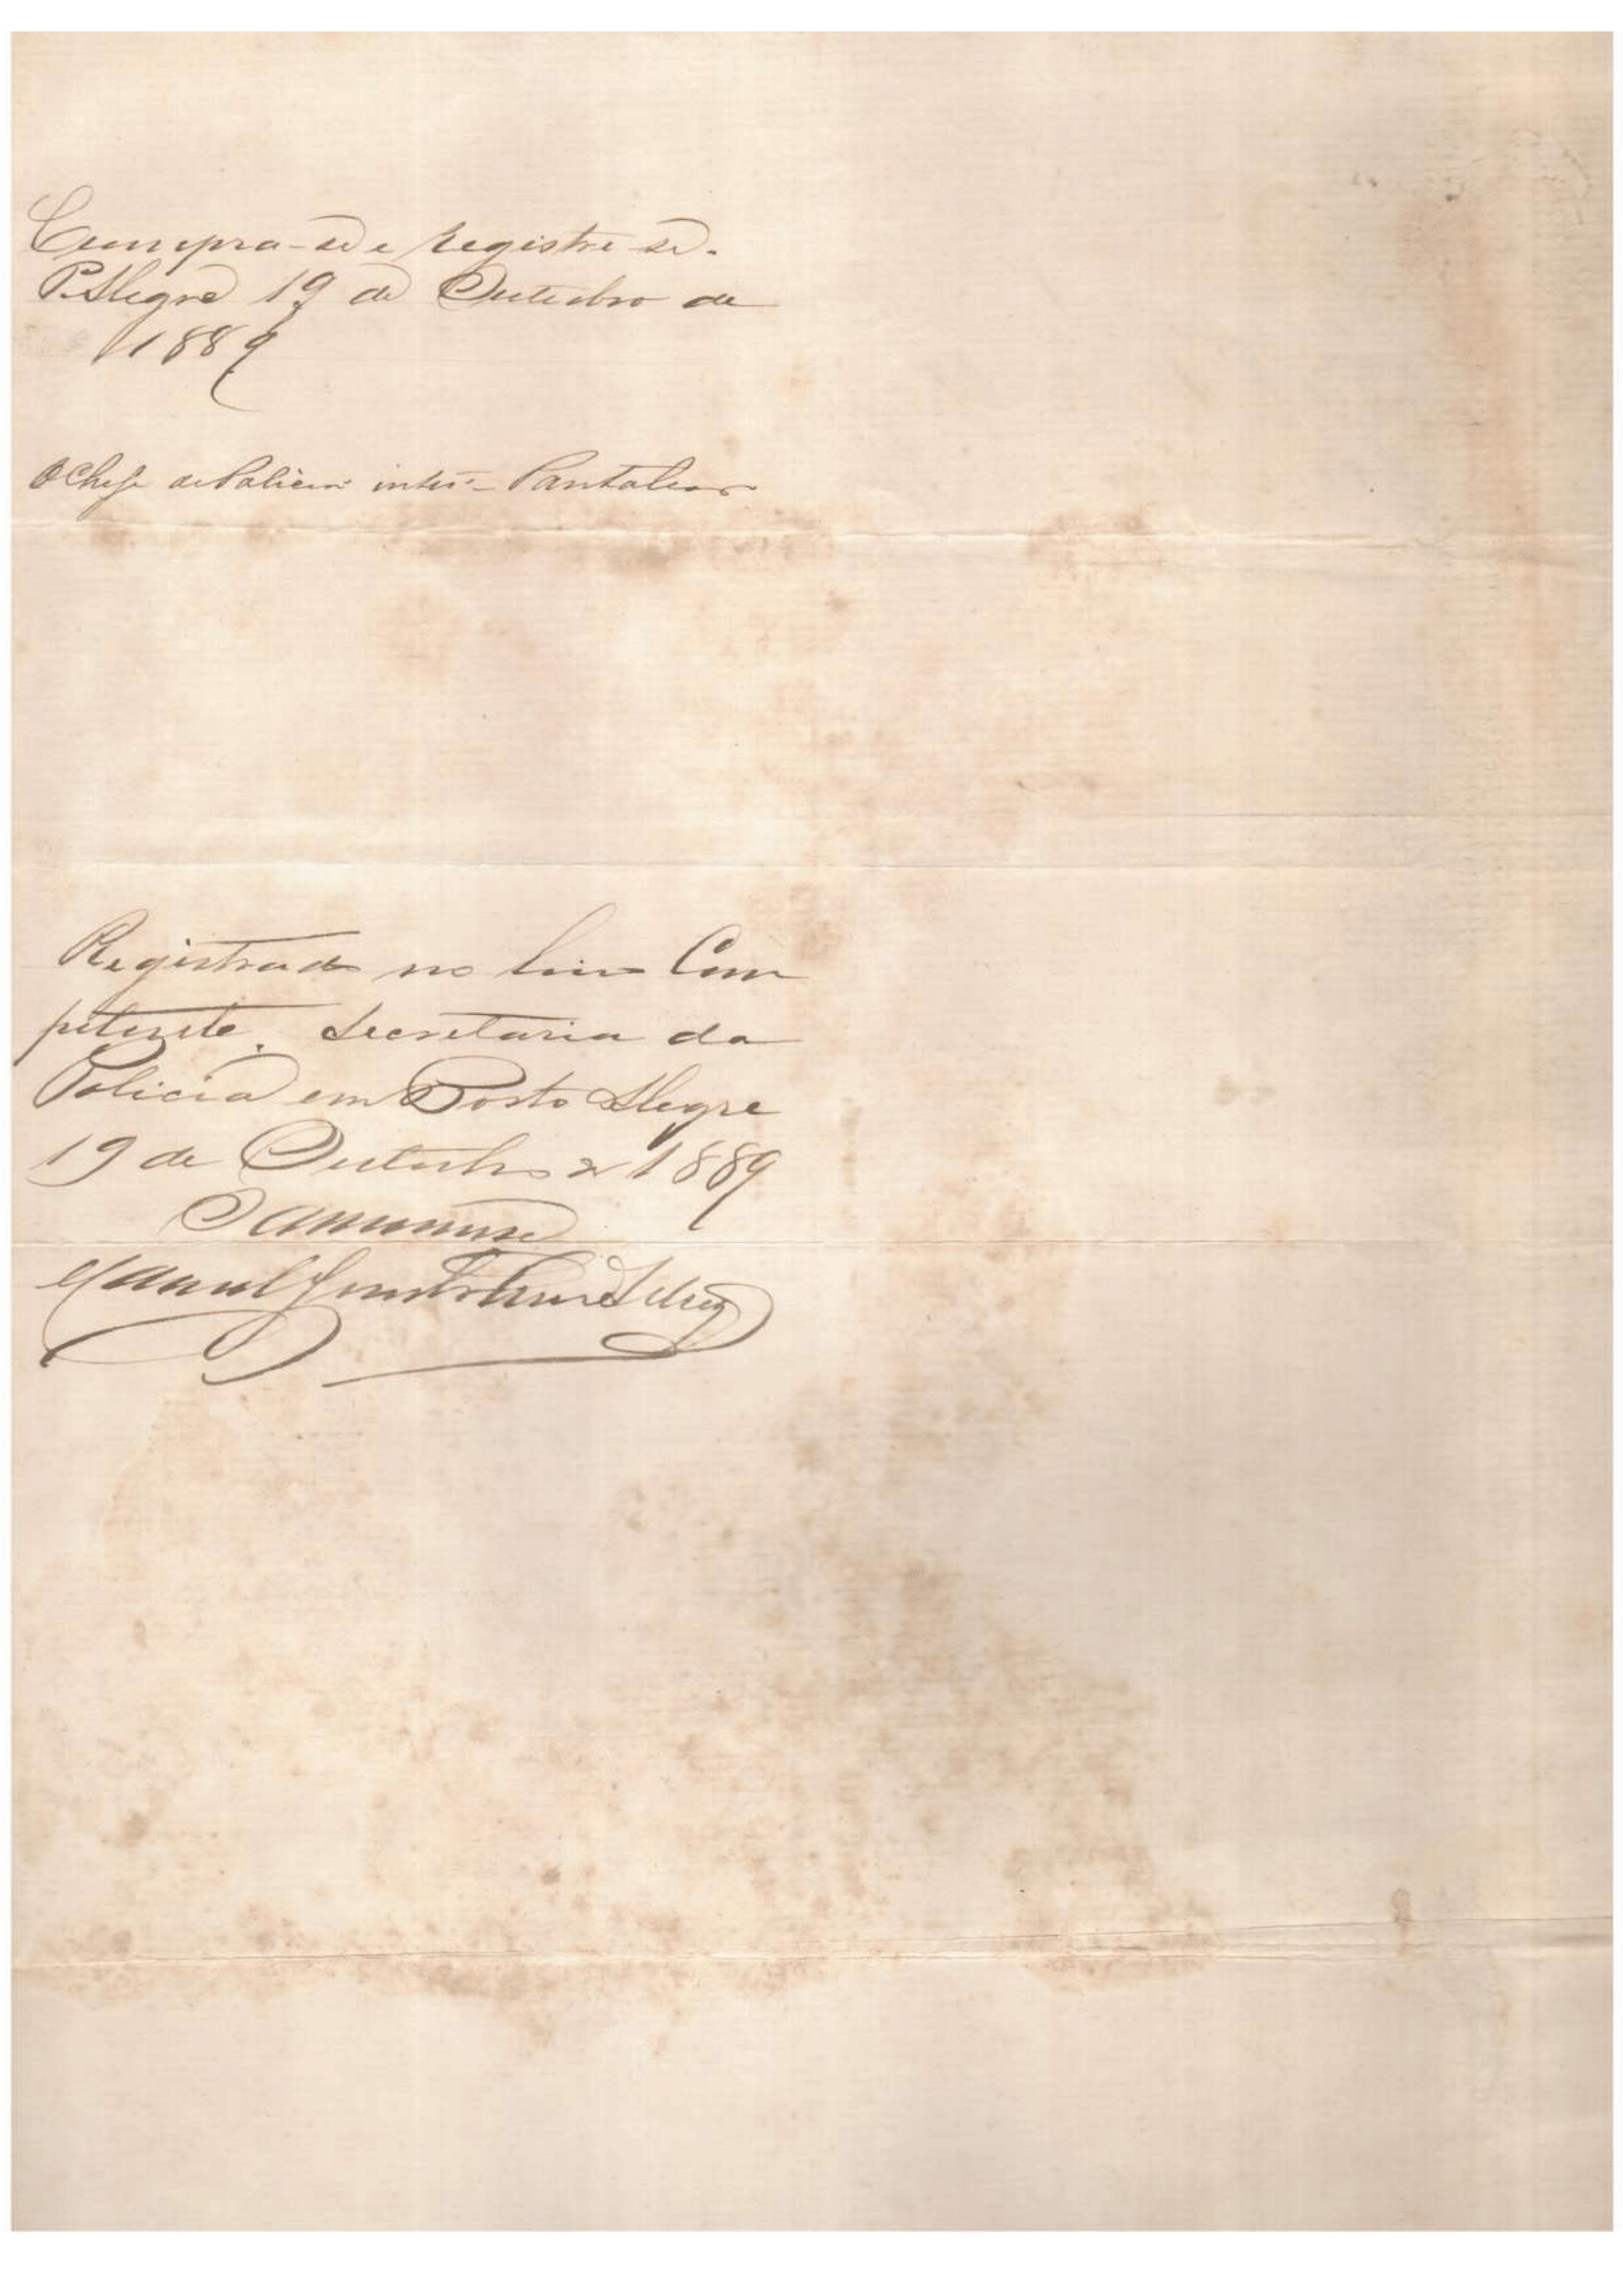 Cumpra-se e registre-se.
P. Alegre 19 de Outubro de
1889
O Chefe de Policia inter.º Pantaleão
Registrado no livro Com
petente. Secretaria da
Policia em Porto Alegre
19 de Outubro de 1889
O amanuense
Manoel